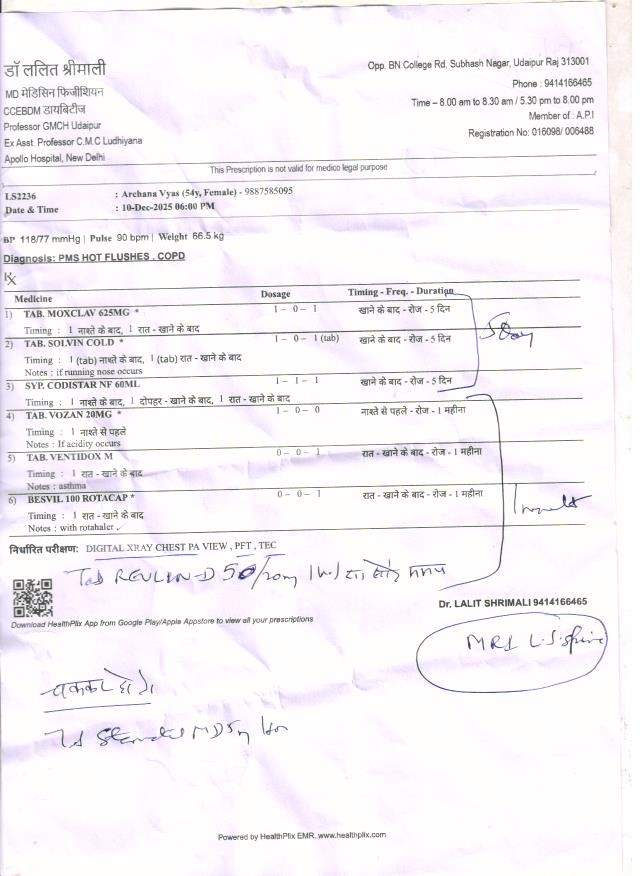 डॉ ललित श्रीमाली
MD मेडिसिन फिजीशियन
CCEBDM डायबिटीज
Professor GMCH Udaipur
Ex Asst. Professor C.M.C Ludhiyana
Apollo Hospital, New Delhi
Opp. BN College Rd, Subhash Nagar, Udaipur Raj 313001
Phone : 9414166465
Time – 8.00 am to 8.30 am / 5.30 pm to 8.00 pm
Member of : A.P.I
Registration No: 016098/ 006488
This Prescription is not valid for medico legal purpose
LS2236 : Archana Vyas (54y, Female) - 9887585095
Date & Time : 10-Dec-2025 06:00 PM
BP 118/77 mmHg | Pulse 90 bpm | Weight 66.5 kg
Diagnosis: PMS HOT FLUSHES , COPD
Rx
Medicine Dosage Timing - Freq. - Duration
1) TAB. MOXCLAV 625MG * 1 – 0 – 1 खाने के बाद - रोज - 5 दिन
Timing : 1 नाश्ते के बाद, 1 रात - खाने के बाद
2) TAB. SOLVIN COLD * 1 – 0 – 1 (tab) खाने के बाद - रोज - 5 दिन
Timing : 1 (tab) नाश्ते के बाद, 1 (tab) रात - खाने के बाद
Notes : if running nose occurs
3) SYP. CODISTAR NF 60ML 1 – 1 – 1 खाने के बाद - रोज - 5 दिन
Timing : 1 नाश्ते के बाद, 1 दोपहर - खाने के बाद, 1 रात - खाने के बाद
5 Day
4) TAB. VOZAN 20MG * 1 – 0 – 0 नाश्ते से पहले - रोज - 1 महीना
Timing : 1 नाश्ते से पहले
Notes : If acidity occurs
5) TAB. VENTIDOX M 0 – 0 – 1 रात - खाने के बाद - रोज - 1 महीना
Timing : 1 रात - खाने के बाद
Notes : asthma
6) BESVIL 100 ROTACAP * 0 – 0 – 1 रात - खाने के बाद - रोज - 1 महीना
Timing : 1 रात - खाने के बाद
Notes : with rotahaler
निर्धारित परीक्षण: DIGITAL XRAY CHEST PA VIEW , PFT , TEC
Tab
Download HealthPlix App from Google Play/Apple Appstore to view all your prescriptions
Dr. LALIT SHRIMALI 9414166465
MRI L.S. Spine
Powered by HealthPlix EMR. www.healthplix.com